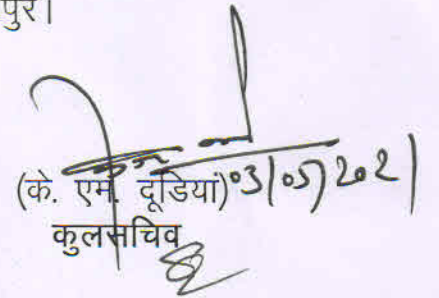 पुर।
(के. एम. दूडिया) 03/05/2021
कुलसचिव